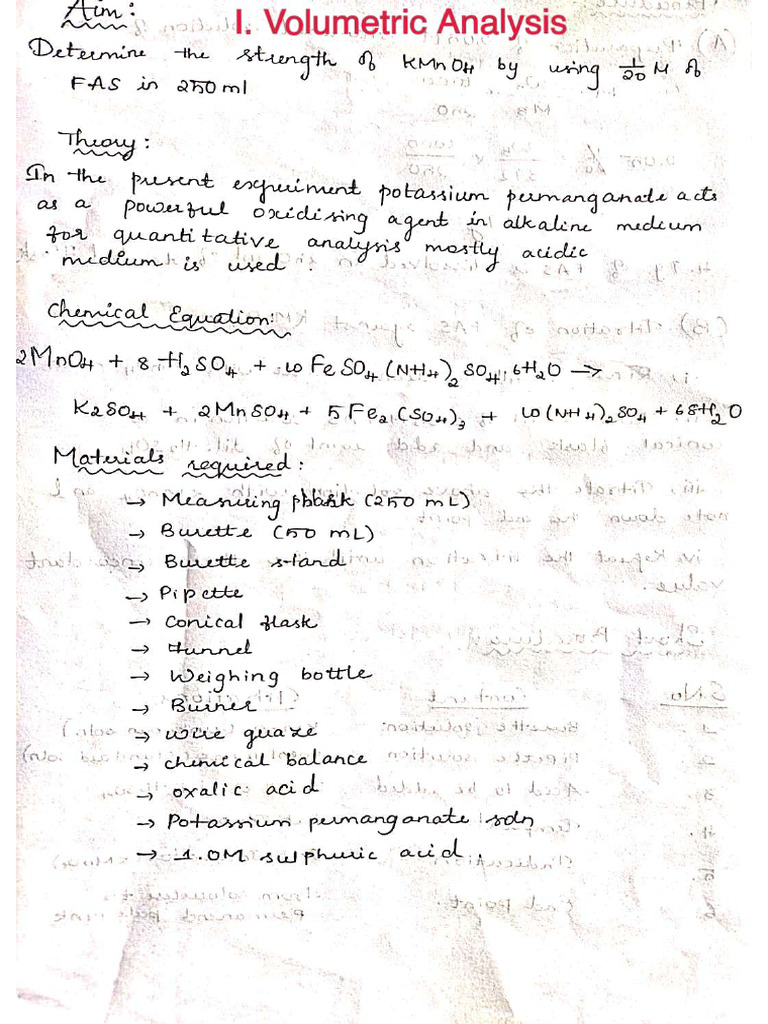 Aim:
I. Volumetric Analysis
Determine the strength of KMnO4 by using 1/20 M of
FAS in 250ml
Theory:
In the present experiment potassium permanganate acts
as a powerful oxidising agent in alkaline medium
for quantitative analysis mostly acidic
medium is used.
Chemical Equation:
2MnO4 + 8 H2SO4 + 10 FeSO4 (NH4)2 SO4 6H2O →
K2SO4 + 2MnSO4 + 5 Fe2 (SO4)3 + 10 (NH4)2 SO4 + 68H2O
Materials required:
→ Measuring flask (250 mL)
→ Burette (50 mL)
→ Burette stand
→ Pipette
→ Conical flask
→ Funnel
→ Weighing bottle
→ Burner
→ wire guaze
→ chemical balance
→ oxalic acid
→ Potassium permanganate soln
→ 1.0M sulphuric acid.